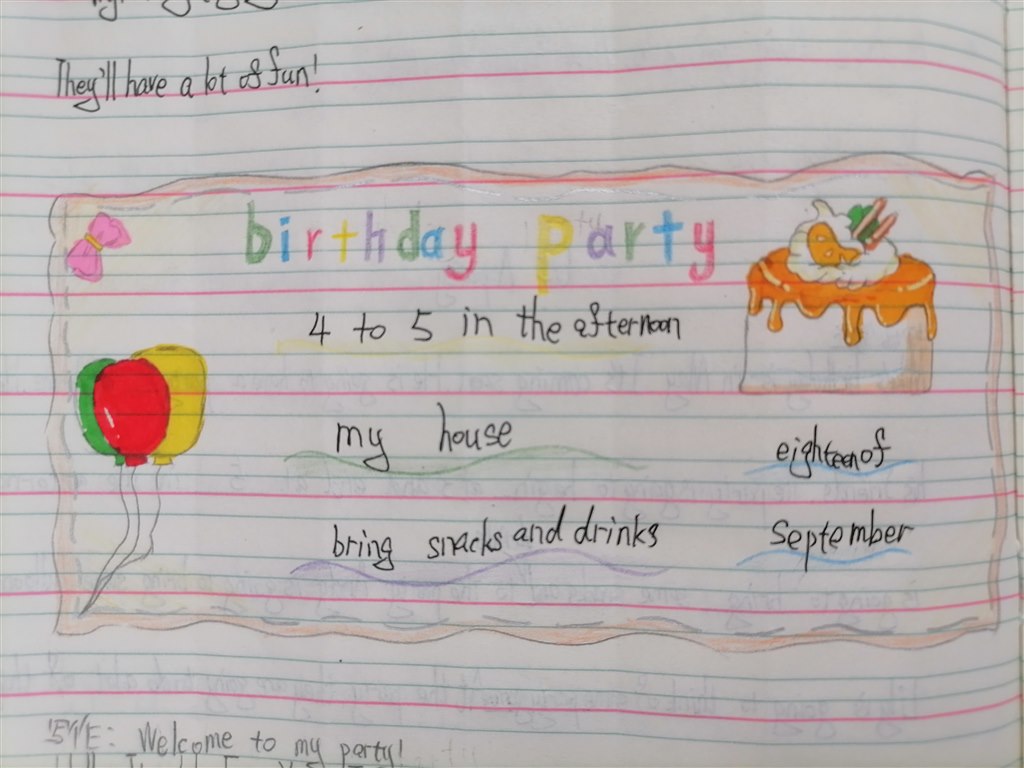 They'll have a lot of fun!
birthday party
4 to 5 in the afternoon
my house
eighteen of
bring snacks and drinks
September
Welcome to my party!